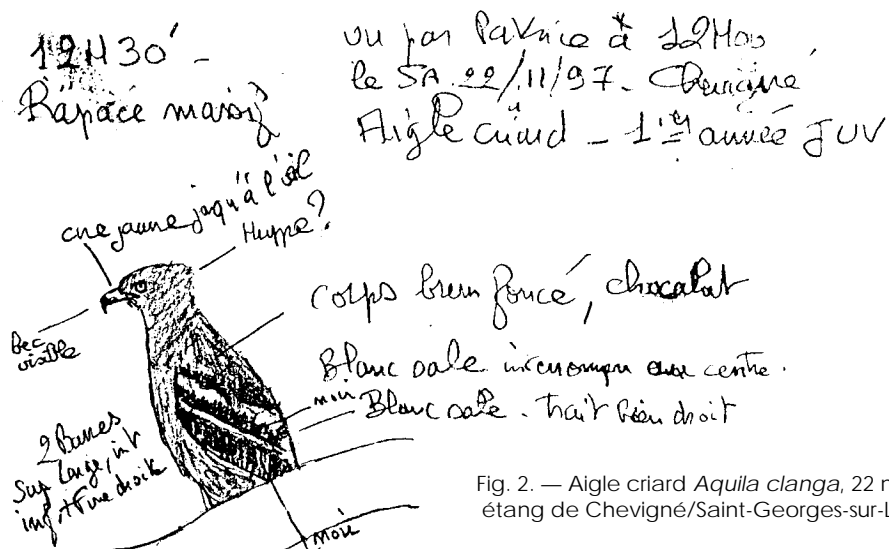 12H30' -
Rapace massif
vu par Patrice à 12H00
le SA. 22/11/97 - Chevigné
Aigle criard - 1ière année JUV
cire jaune jusqu'à l'œil
Huppe?
Bec
visible
corps brun foncé, chocolat
Blanc sale interrompu au centre.
noir
Blanc sale. trait bien droit
2 Barres
Sup large, int
inf + fine droite
noir
Fig. 2. — Aigle criard Aquila clanga, 22 n
étang de Chevigné/Saint-Georges-sur-L